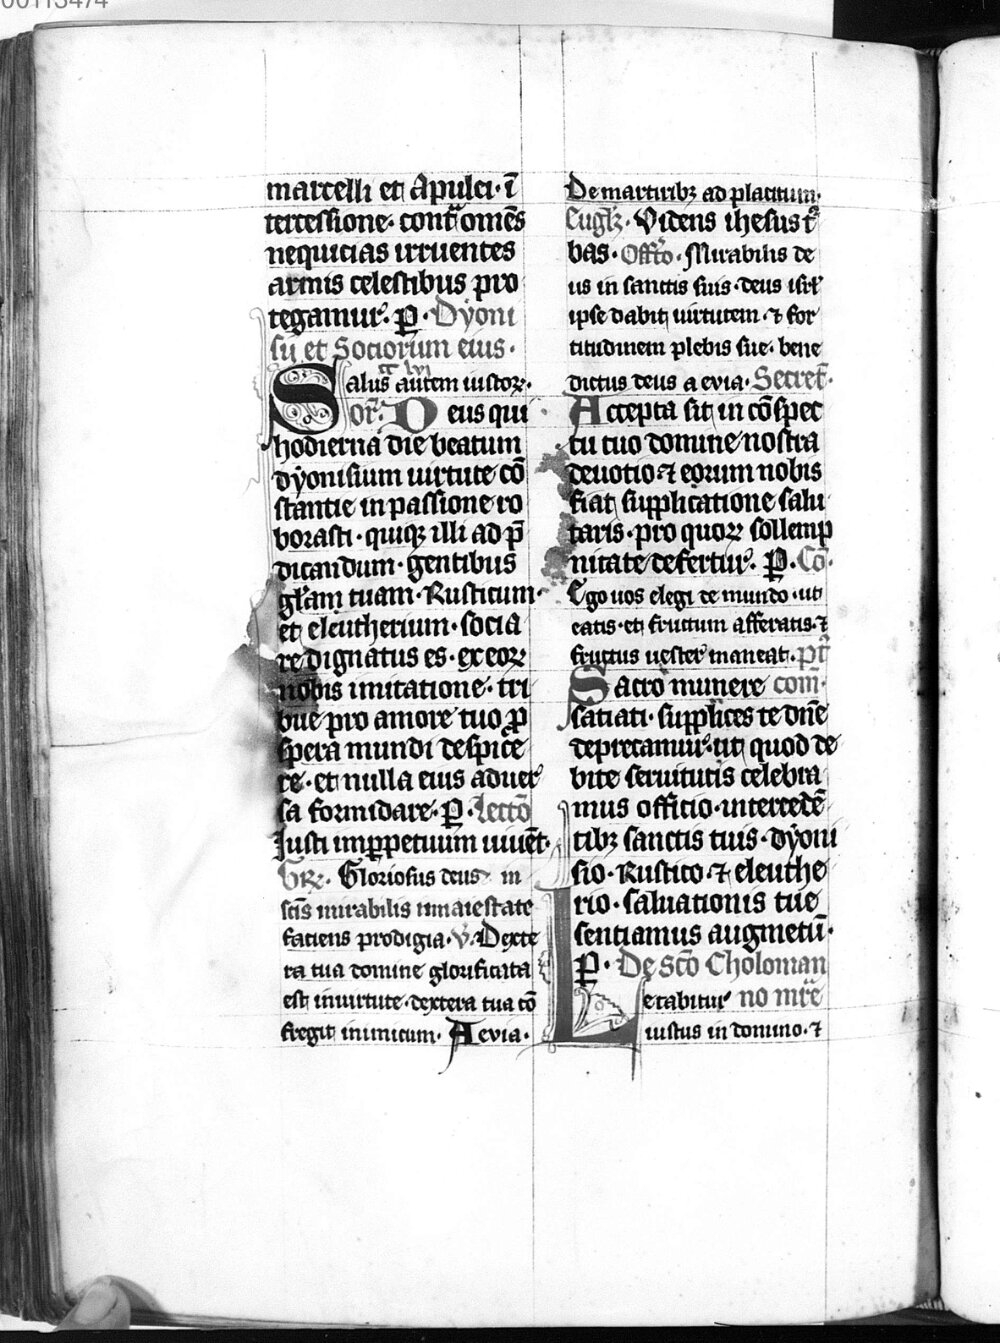 marcelli et Apulei · ī
tercessione · cont̃ om̄es
nequicias irruentes
armis celestibus pro
tegamur̉ · p̲ · Dẏoni
sii et Sociorum eius ·
cc lvi
Salus autem iustoꝝ ·
or̄ · Deus qui
hodierna die beatum
dẏonisium uirtute cō
stantie in passione ro
borasti · quiqꝫ illi ad p̄
dicandum · gentibus
gl̄am tuam · Rusticum ·
et eleutherium · socia
re dignatus es · ex eoꝝ
nobis imitatione · tri
bue pro amore tuo ꝓ
spera mundi despice
re · et nulla eius aduer̉
sa formidare · p̲ · Lectō
Justi imꝑpetuum uiuēt ·
Gr̄ · Gloriosus deus in
sc̄is mirabilis in maiestate
faciens prodigia · V̓ · Dexte
ra tua domine glorificata
est in uirtute · dextera tua cō
fregit inimicum · Aevia ·
De martiribꝫ ad placitum ·
Eugl̄ꝫ · Videns ihesus t̉
bas · Offr̄o · Mirabilis de
us in sanctis suis · deus isr̄l
ipse dabit uirtutem · ⁊ for
titudinem plebis sue · bene
dictus deus a evia · Secret̄ ·
Accepta sit in cōspec
tu tuo domine nostra
deuotio · ⁊ eorum nobis
fiat supplicatione salu
taris · pro quoꝝ sollemp
nitate defertur̉ · p̲ · Cō ·
Ego uos elegi de mundo · ut
eatis · et fructum afferatis · ⁊
fructus uester maneat · pt̄
Sacro munere com̄ ·
satiati · supplices te dn̄e
deprecamur̉ · ut quod de
bite seruitutis celebra
mus officio · intercedē
tibꝫ sanctis tuis · dẏoni
sio · Rustico · ⁊ eleuthe
rio · saluationis tue
sentiamus augmetū ·
p̲ · De Sc̄o Choloman
Letabitur̉ no mr̄e
iustus in domino · ⁊